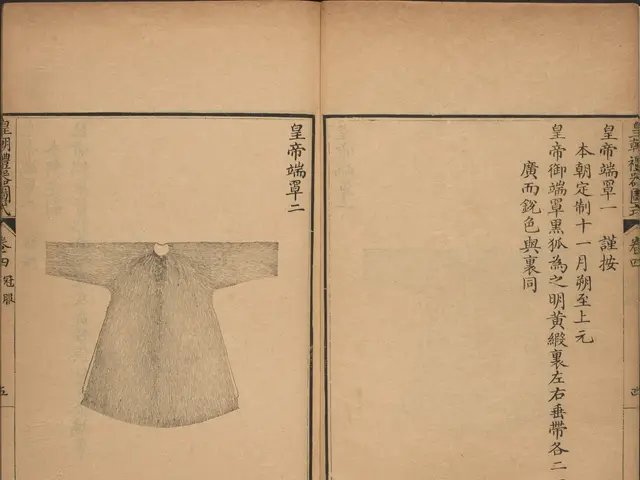 皇朝禮器圖式
卷四
皇帝端罩一　謹按
本朝定制十一月朔至上元
皇帝御端罩黑狐為之明黃緞裏左右垂帶各二
廣而銳色與裏同
皇帝端罩二
皇朝禮器圖式
卷四
冠服
五